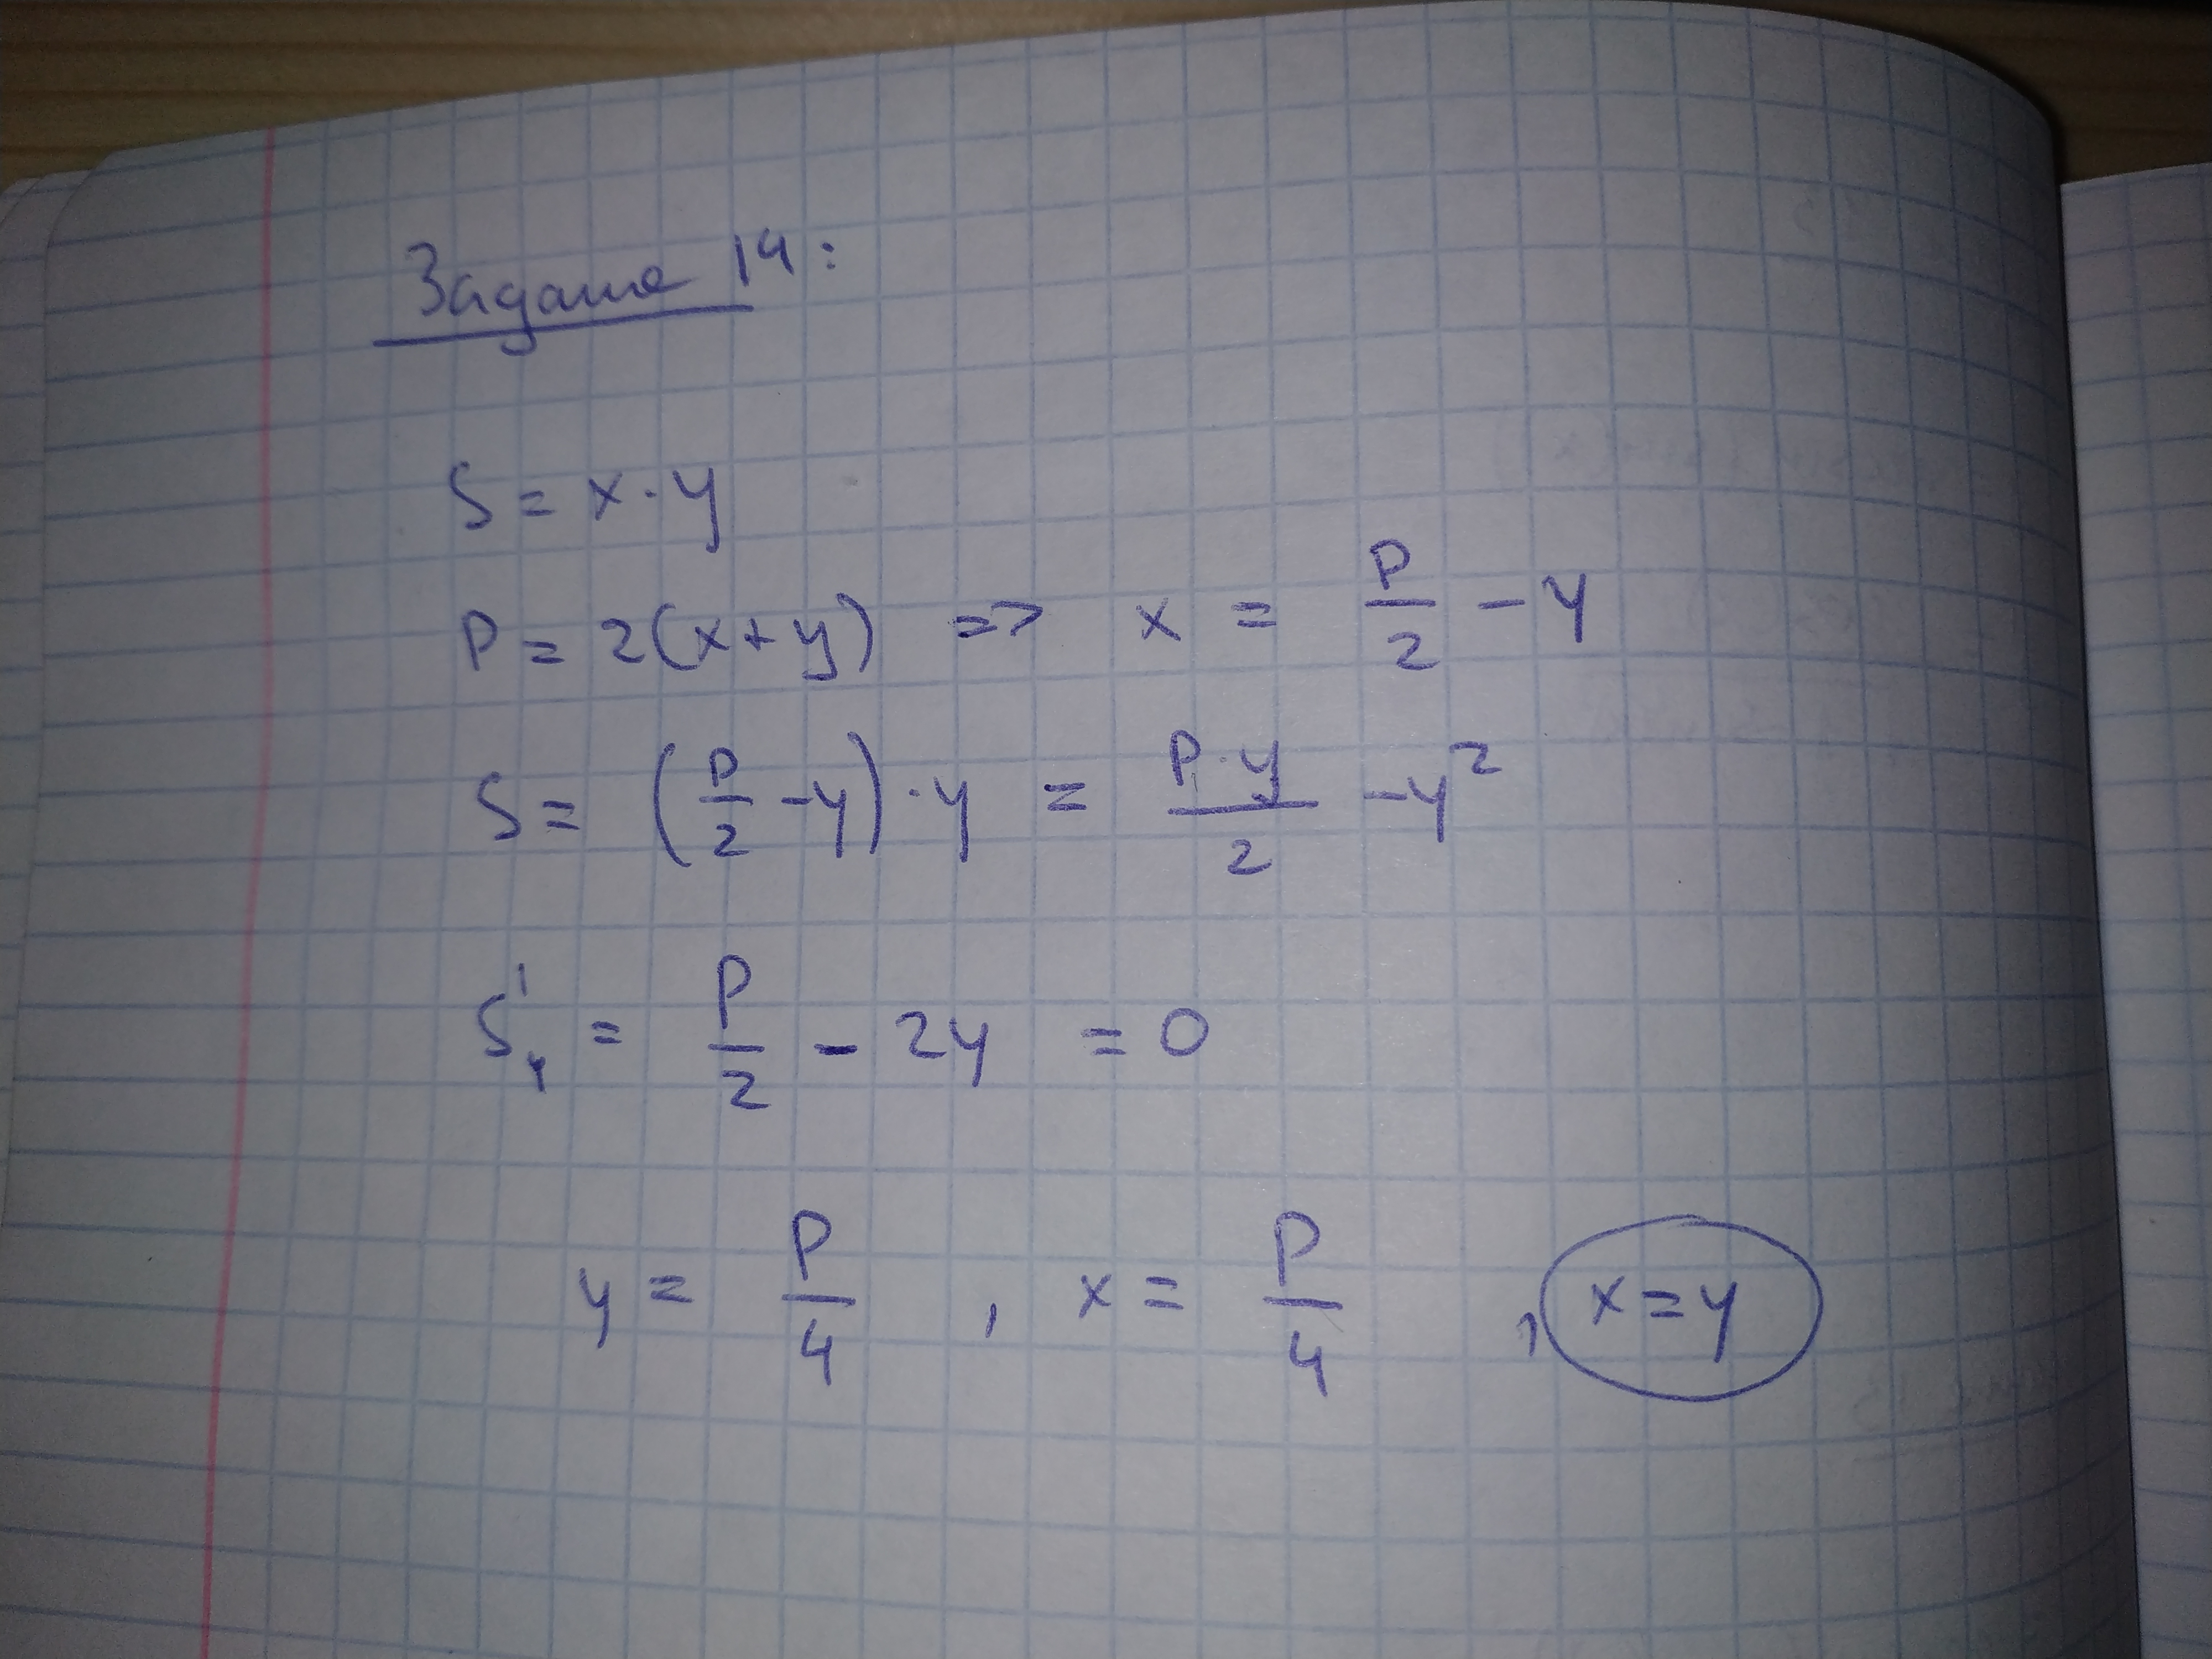 Задание 14:
S = x · y
P = 2(x+y) => x = P/2 - y
S = (P/2 - y) · y = P·y/2 - y²
S'y = P/2 - 2y = 0
y = P/4 , x = P/4 , x = y